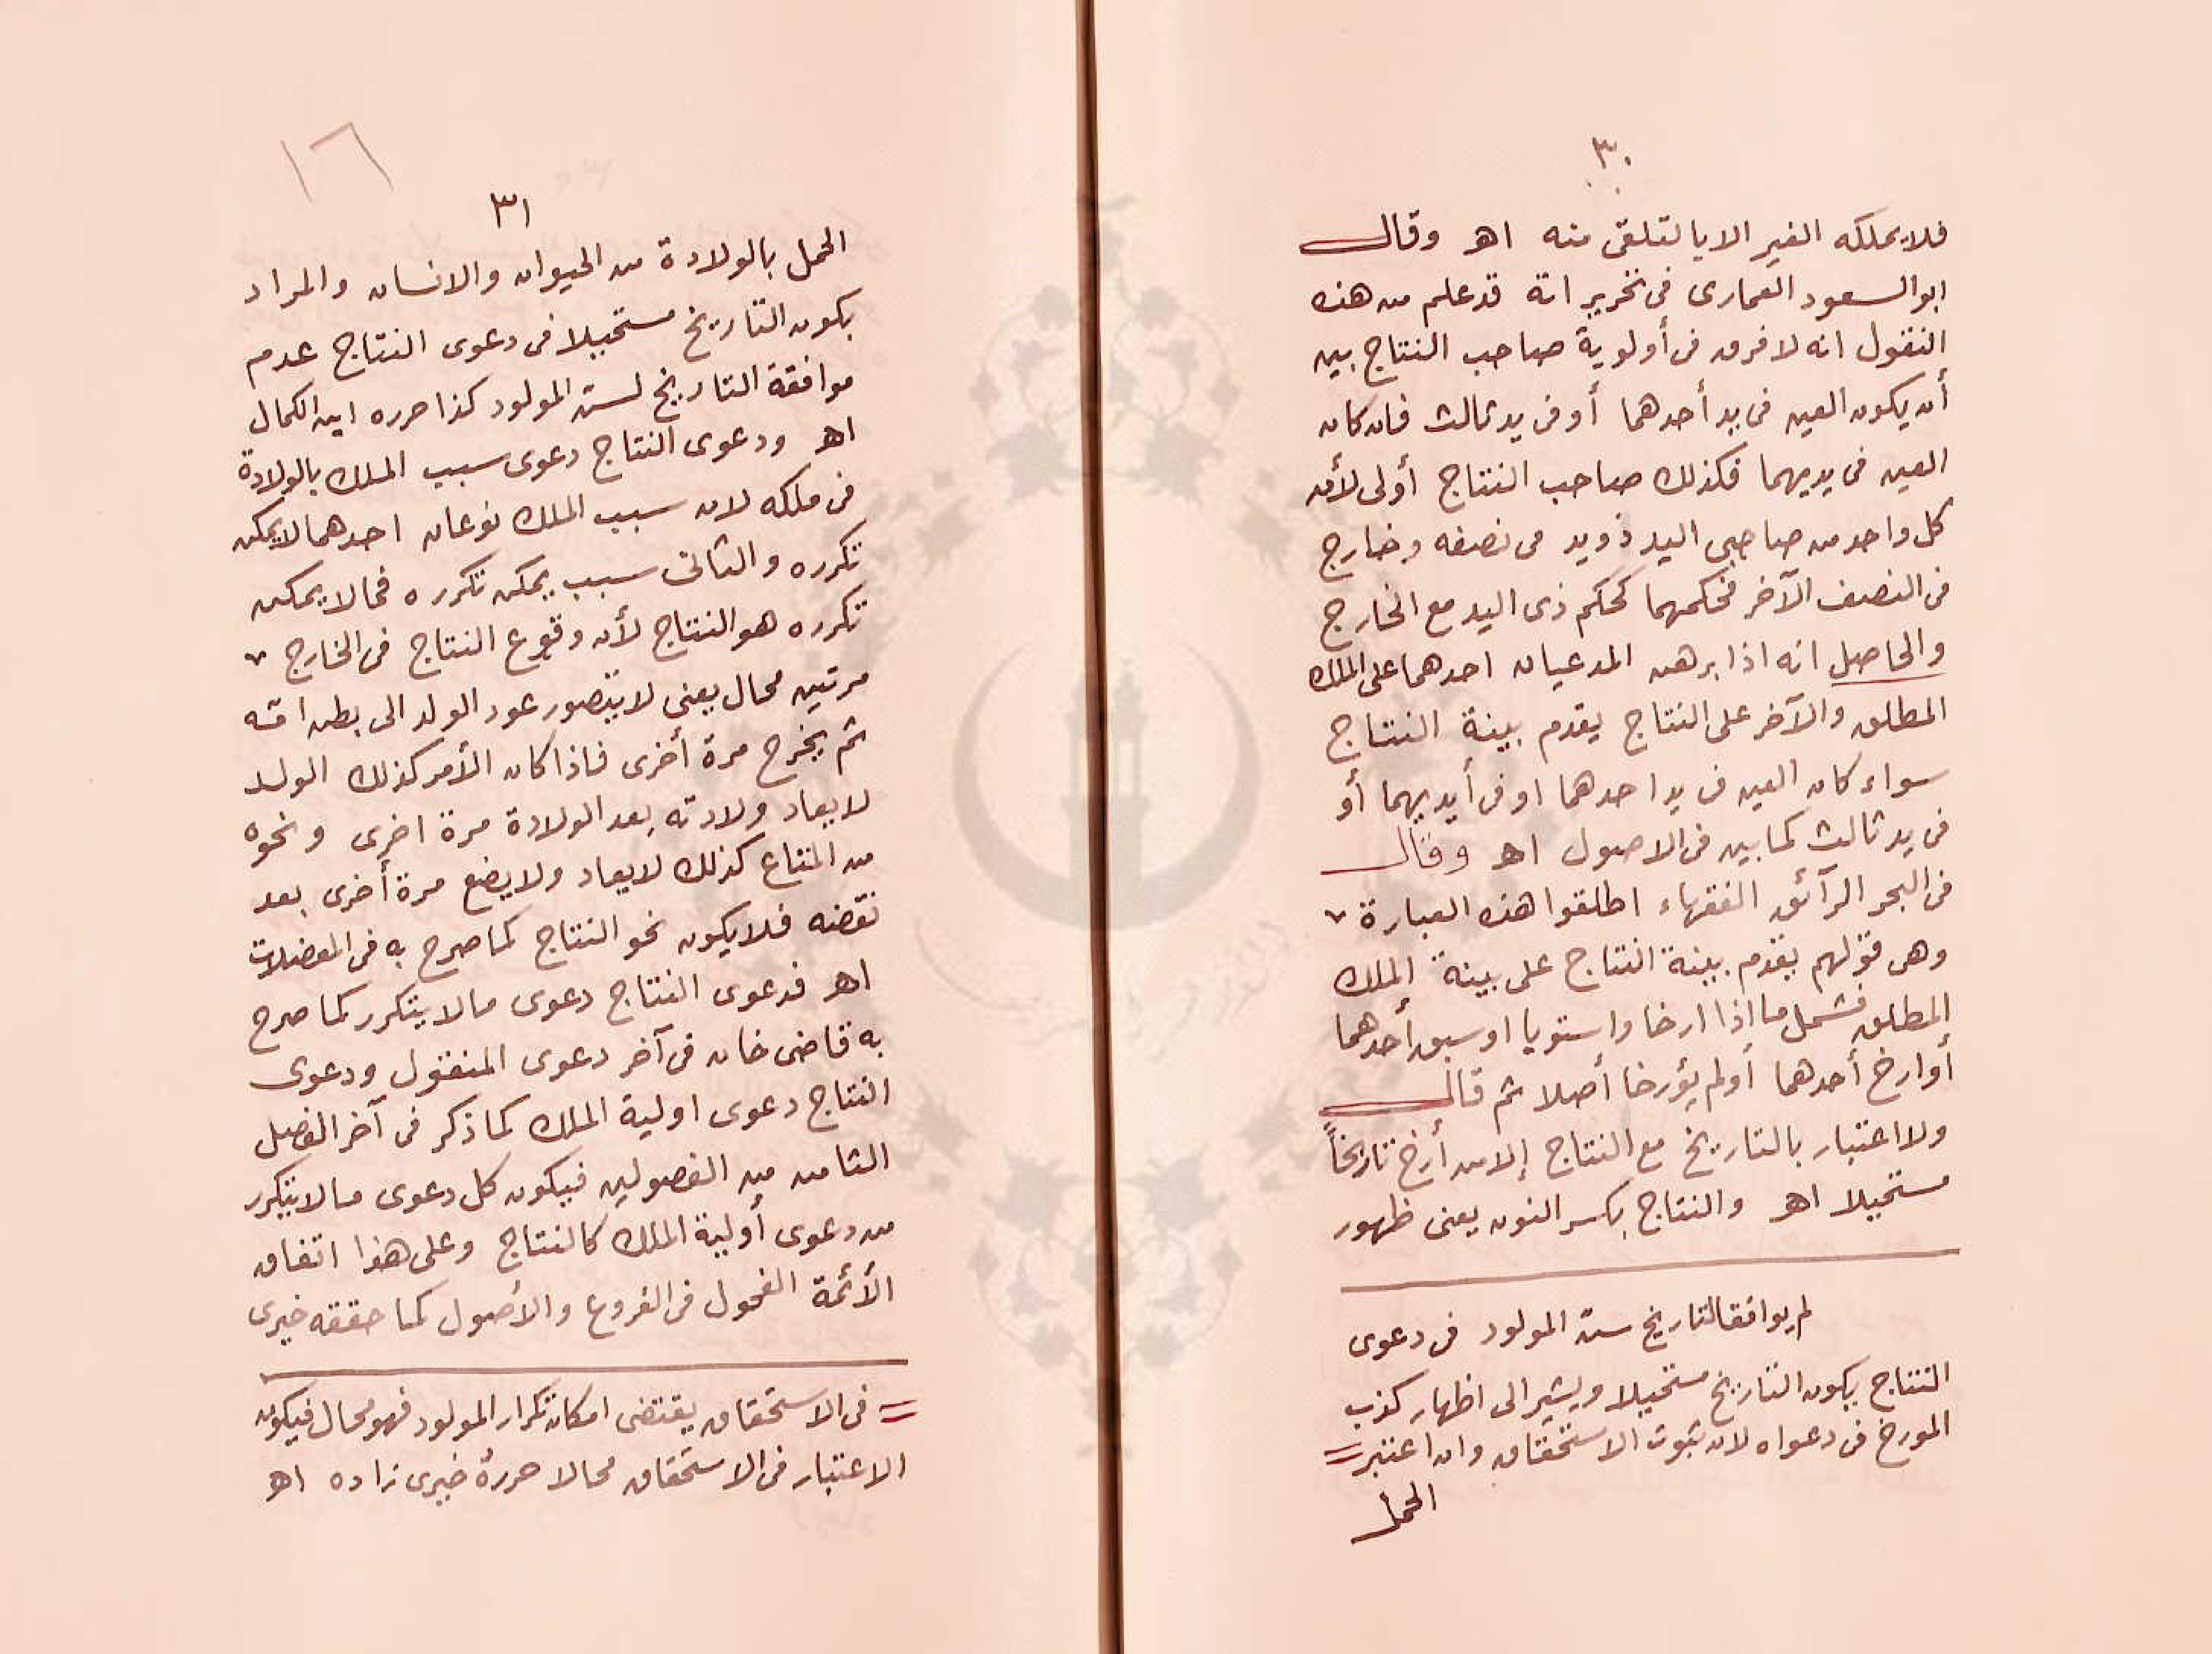 ٣٠
فلا يملكه الغير الا بالتلقى منه اهـ وقال
ابو السعود العمارى فى تحريراته قد علم من هذه
النقول انه لا فرق فى أولوية صاحب النتاج بين
أن يكون العين فى يد أحدهما أو فى يد ثالث فان كان
العين فى يديهما فكذلك صاحب النتاج أولى لأن
كل واحد من صاحبى اليد ذو يد فى نصفه وخارج
فى النصف الآخر فحكمهما كحكم ذى اليد مع الخارج
والحاصل انه اذا برهن المدعيان احدهما على الملك
المطلق والآخر على النتاج يقدم بينة النتاج
سواء كان العين فى يد احدهما او فى أيديهما أو
فى يد ثالث كما بين فى الاصول اهـ وقال
فى البحر الرآئق الفقهاء اطلقوا هذه العبارة
وهى قولهم يقدم بينة النتاج على بينة الملك
المطلق فشمل ما إذا ارخا واستويا او سبق أحدهما
أو ارخ أحدهما أو لم يؤرخا أصلا ثم قال
ولا اعتبار بالتاريخ مع النتاج إلا من أرخ تاريخاً
مستحيلا اهـ والنتاج بكسر النون يعنى ظهور
لم يوافق التاريخ سن المولود فى دعوى
النتاج يكون التاريخ مستحيلا ويشير الى اظهار كذب
المورخ فى دعواه لان ثبوت الاستحقاق وان اعتبر
الحمل
١٦
٣١
الحمل بالولادة من الحيوان والانسان والمراد
بكون التاريخ مستحيلا فى دعوى النتاج عدم
موافقة التاريخ لسن المولود كذا حرره ابن الكمال
اهـ ودعوى النتاج دعوى سبب الملك بالولادة
فى ملكه لان سبب الملك نوعان احدهما لا يمكن
تكرره والثانى سبب يمكن تكرره فما لا يمكن
تكرره هو النتاج لأن وقوع النتاج فى الخارج
مرتين محال يعنى لا يتصور عود الولد الى بطن امّه
ثم يخرج مرة أخرى فاذا كان الأمر كذلك الولد
لا يعاد ولادته بعد الولادة مرة اخرى ونحوه
من المتاع كذلك لا يعاد ولا يضع مرة أخرى بعد
نقضه فلا يكون نحو النتاج كما صرح به فى المعضلات
اهـ فدعوى النتاج دعوى ما لا يتكرر كما صرح
به قاضى خان فى آخر دعوى المنقول ودعوى
النتاج دعوى اولية الملك كما ذكر فى آخر الفصل
الثامن من الفصولين فيكون كل دعوى ما لا يتكرر
من دعوى أولية الملك كالنتاج وعلى هذا اتفاق
الأئمة الفحول فى الفروع والأصول كما حققه خيرى
فى الاستحقاق يقتضى امكان تكرار المولود فهو محال فيكون
الاعتبار فى الاستحقاق محالا حرره خيرى زاده اهـ